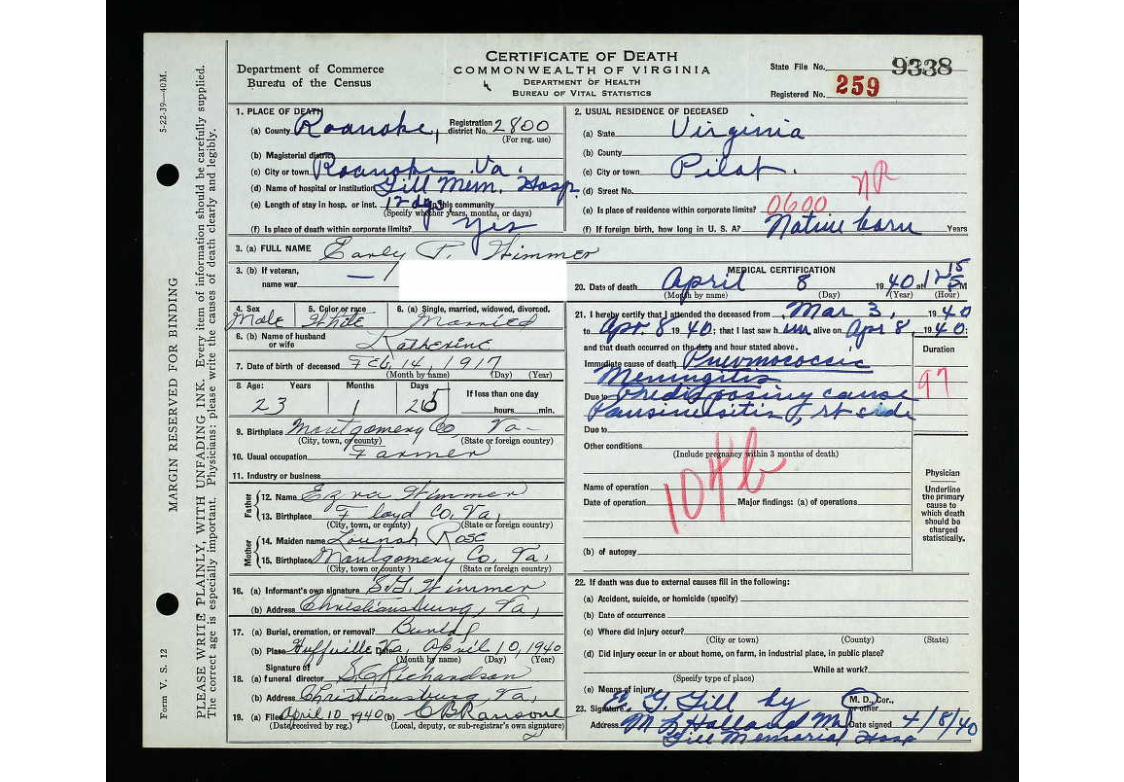 CERTIFICATE OF DEATH
COMMONWEALTH OF VIRGINIA
DEPARTMENT OF HEALTH
BUREAU OF VITAL STATISTICS
Department of Commerce
Bureau of the Census
State File No. 9338
Registered No. 259
5-22-39—40M.
MARGIN RESERVED FOR BINDING
PLEASE WRITE PLAINLY, WITH UNFADING INK. Every item of information should be carefully supplied.
The correct age is especially important. Physicians: please write the causes of death clearly and legibly.
Form V. S. 12
1. PLACE OF DEATH
(a) County Roanoke, Registration district No. 2800
(For reg. use)
(b) Magisterial district
(c) City or town Roanoke Va.
(d) Name of hospital or institution Gill Mem. Hosp.
(e) Length of stay in hosp. or inst. 12 dys In this community
(Specify whether years, months, or days)
(f) Is place of death within corporate limits? yes
2. USUAL RESIDENCE OF DECEASED
(a) State Virginia
(b) County
(c) City or town Pilot.
(d) Street No. NR
(e) Is place of residence within corporate limits? 0600
(f) If foreign birth, how long in U. S. A.? Native born Years
3. (a) FULL NAME Early P. Wimmer
3. (b) If veteran, name war —
4. Sex Male
5. Color or race White
6. (a) Single, married, widowed, divorced. Married
6. (b) Name of husband or wife Katherine
7. Date of birth of deceased Feb. 14, 1917
(Month by name) (Day) (Year)
8 Age: Years 23 Months 1 Days 25 If less than one day hours min.
9. Birthplace Montgomery Co, Va.
(City, town, or county) (State or foreign country)
10. Usual occupation Farmer
11. Industry or business
Father
12. Name Ezra Wimmer
13. Birthplace Floyd Co. Va.
(City, town, or county) (State or foreign country)
Mother
14. Maiden name Rose
15. Birthplace Montgomery Co, Va.
(City, town or county) (State or foreign country)
16. (a) Informant's own signature Wimmer
(b) Address Christiansburg, Va,
17. (a) Burial, cremation, or removal? Burial
(b) Place Huffville Va, Date April 10, 1940
(Month by name) (Day) (Year)
18. (a) Signature of funeral director Richardson
(b) Address Christiansburg Va.
19. (a) Filed April 10 1940 (b) Ransone
(Date received by reg.) (Local, deputy, or sub-registrar's own signature)
MEDICAL CERTIFICATION
20. Date of death April 8 1940 at 12 15 M
(Month by name) (Day) (Year) (Hour)
21. I hereby certify that I attended the deceased from Mar 3, 1940
to Apr. 8 1940; that I last saw him alive on Apr 8, 1940;
and that death occurred on the date and hour stated above. Duration
Immediate cause of death Pneumococcic
Meningitis
Due to Predisposing cause 97
Pansinusitis, rt side
Due to
Other conditions
(Include pregnancy within 3 months of death)
104b
Name of operation
Date of operation Major findings: (a) of operations
(b) of autopsy
Physician
Underline the primary cause to which death should be charged statistically.
22. If death was due to external causes fill in the following:
(a) Accident, suicide, or homicide (specify)
(b) Date of occurrence
(c) Where did injury occur?
(City or town) (County) (State)
(d) Did injury occur in or about home, on farm, in industrial place, in public place?
While at work?
(Specify type of place)
(e) Means of injury
23. Signature E. G. Gill by M. D., Cor., or other
Address Holland Date signed 4/8/40
Gill Memorial Hosp